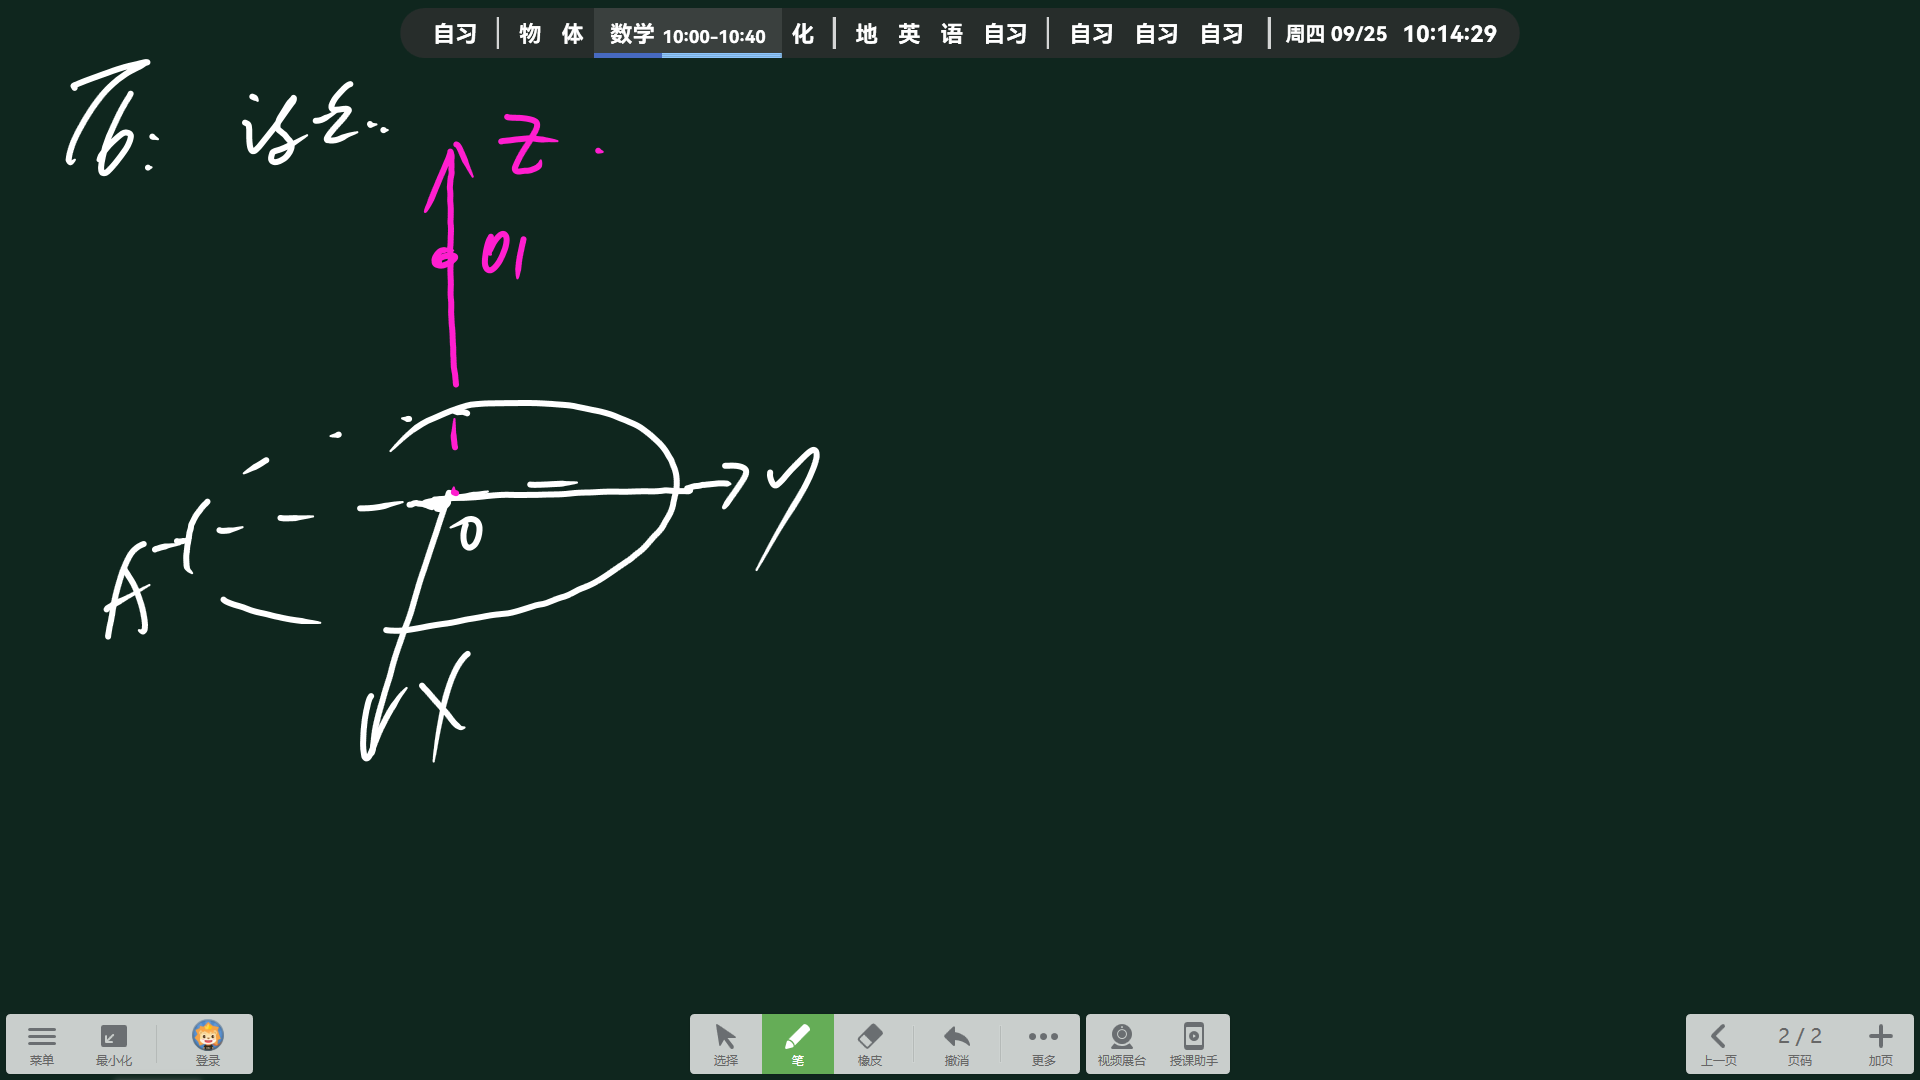 自习 | 物 体 数学 10:00-10:40 化 | 地 英 语 自习 | 自习 自习 自习 | 周四 09/25 10:14:29
T6:
Z
O1
y
O
A
X
菜单 最小化 登录 选择 笔 橡皮 撤消 更多 视频展台 授课助手 上一页 2 / 2 页码 加页